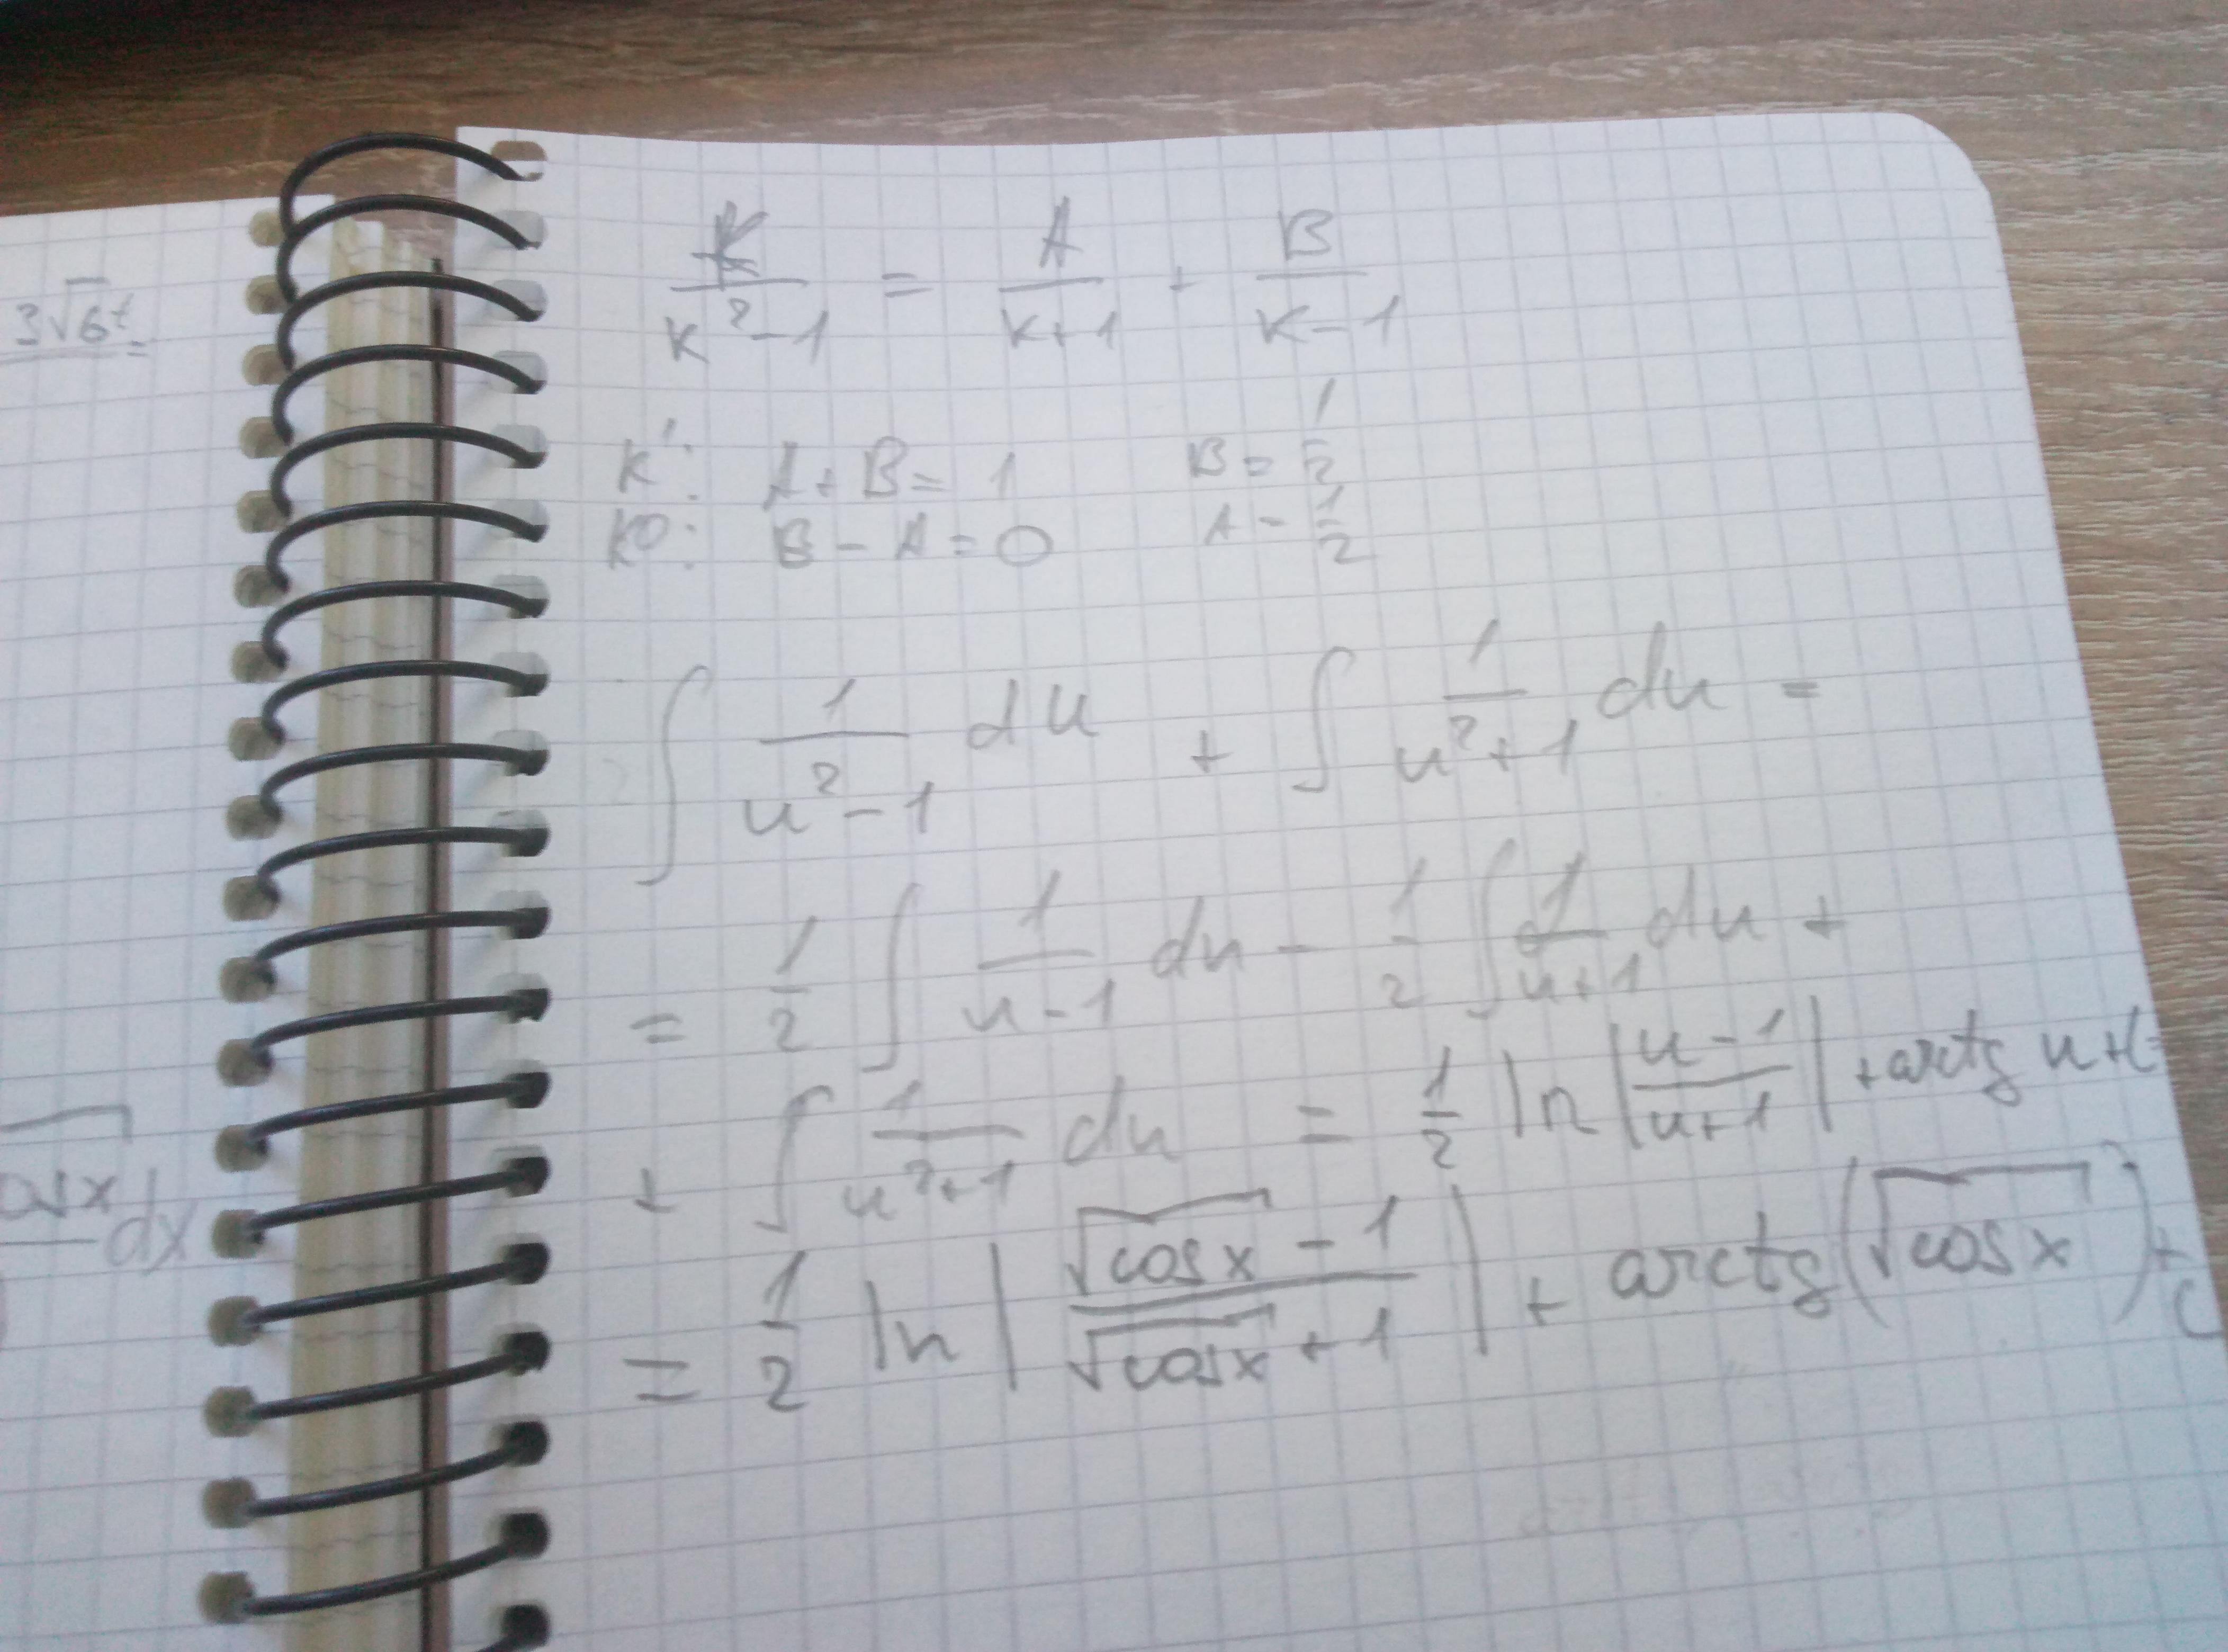 3√6t =
K/(K²-1) = A/(K+1) + B/(K-1)
K¹: A+B=1 B=1/2
K0: B-A=0 A=1/2
∫ 1/(u²-1) du + ∫ 1/(u²+1) du =
= 1/2 ∫ 1/(u-1) du - 1/2 ∫ 1/(u+1) du +
+ ∫ 1/(u²+1) du = 1/2 ln |(u-1)/(u+1)| + arctg u+C=
= 1/2 ln |(√cosx - 1)/(√cosx + 1)| + arctg(√cosx)+C
dx